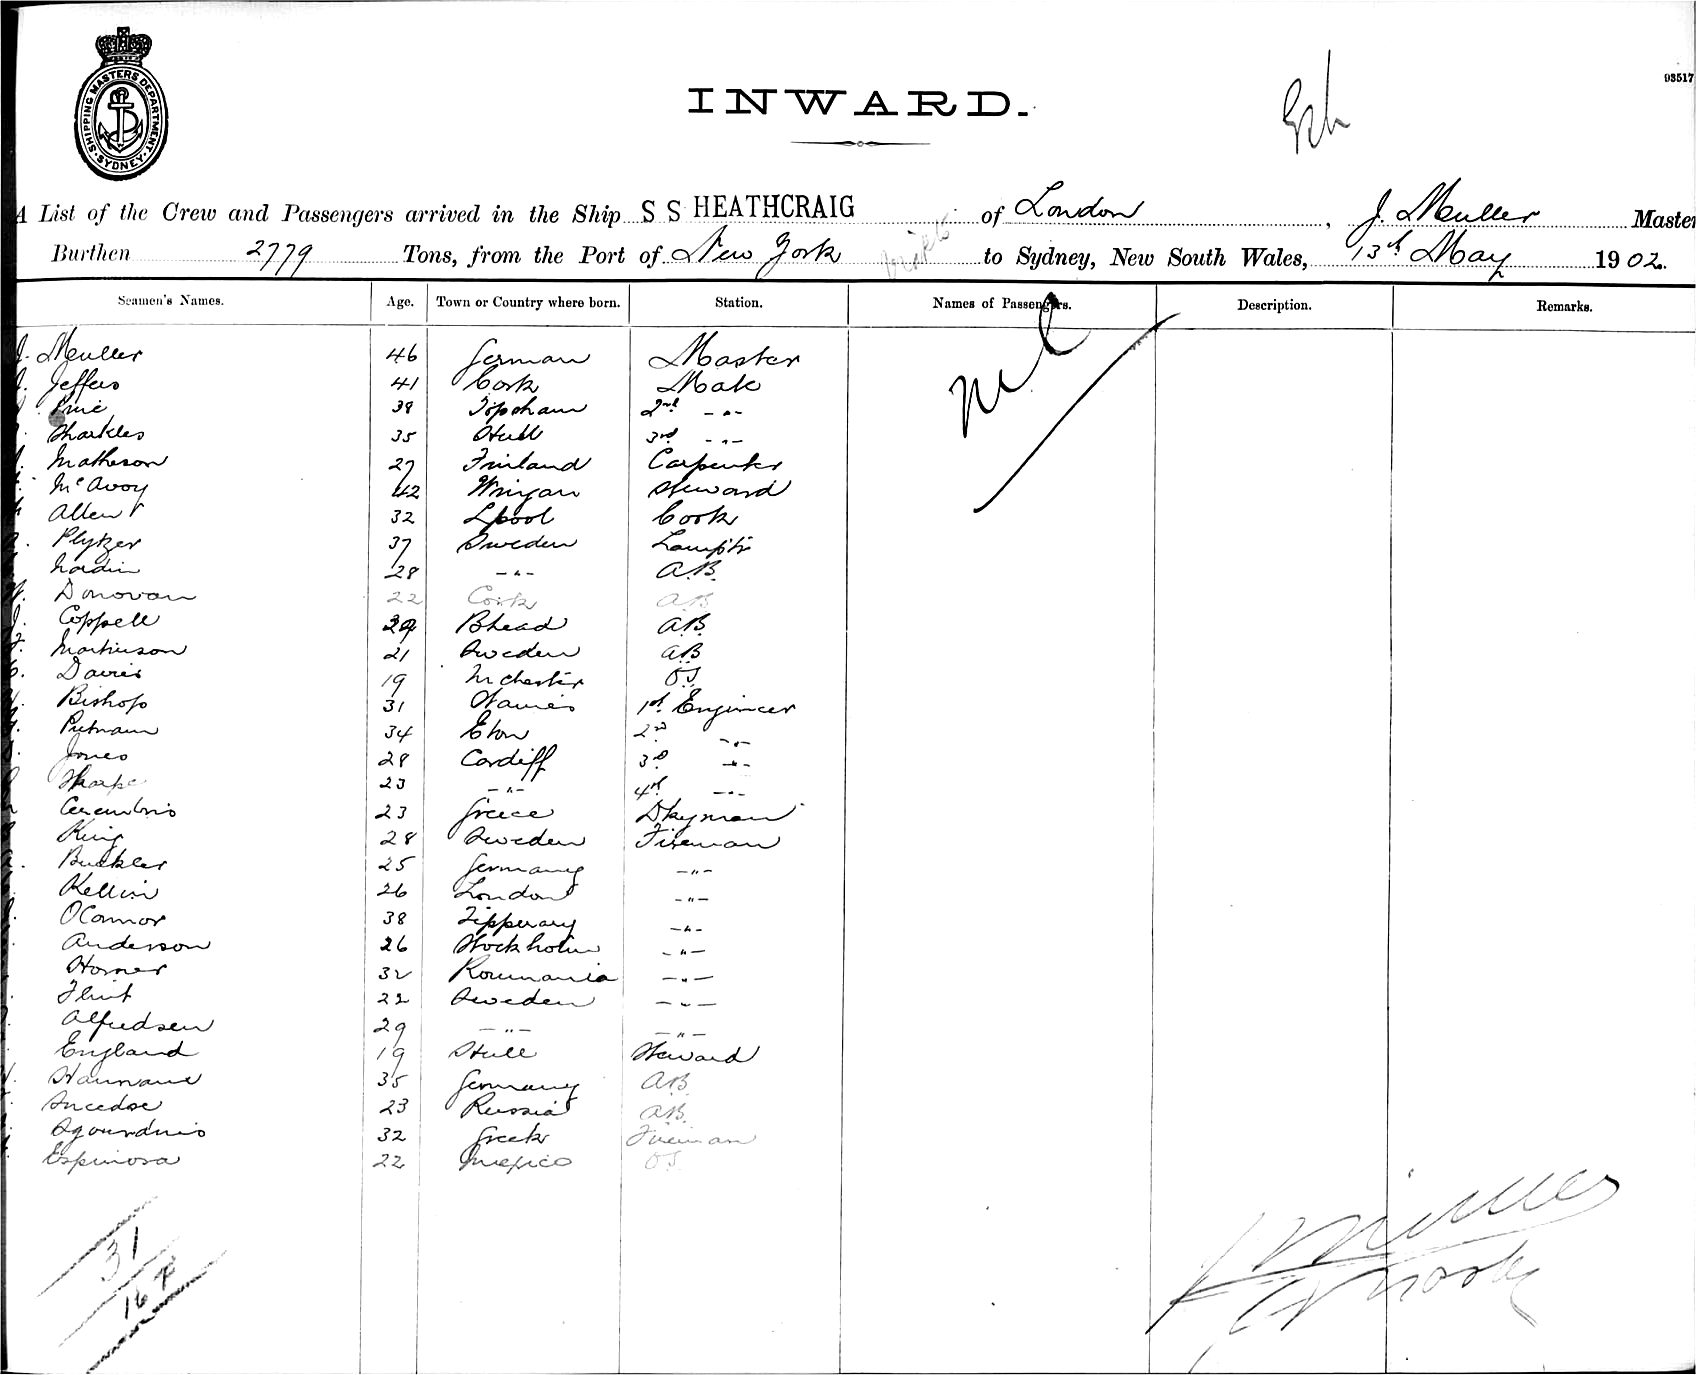 SHIPPING MASTERS DEPARTMENT
SYDNEY
INWARD.
93517
A List of the Crew and Passengers arrived in the Ship S S HEATHCRAIG of London, J. Meuller Master
Burthen 2779 Tons, from the Port of New York to Sydney, New South Wales, 13th May 1902.
Seamen's Names. Age. Town or Country where born. Station. Names of Passengers. Description. Remarks.
J. Meuller 46 German Master
Jeffers 41 Cork Mate nil
38 Topsham 2nd -"-
Sharkles 35 Hull 3rd -"-
Matheson 27 Finland Carpenter
McAvoy 42 Wingan Steward
Allen 32 Lpool Cook
Plytzer 37 Sweden Lamptr
Nordin 28 -"- A.B.
W. Donovan 22 Cork AB
J. Coppell 29 Bhead A.B.
Martinson 21 Sweden AB
Davies 19 Mchester O.S.
Bishop 31 1st Engineer
Putnam 34 Eton 2nd -"-
Jones 28 Cardiff 3rd -"-
Sharpe 23 -"- 4th -"-
23 Greece Dkyman
King 28 Sweden Fireman
Buckler 25 Germany -"-
Kellin 26 London -"-
OConnor 38 Tipperary -"-
Anderson 26 Stockholm -"-
Horner 32 Roumania -"-
Flint 22 Sweden -"-
Alfredsen 29 -"- -"-
England 19 Hull Steward
Hannane 35 Germany AB
23 Russia AB
Sgourdnis 32 Greek Fireman
Espinosa 22 Mexico OS
31